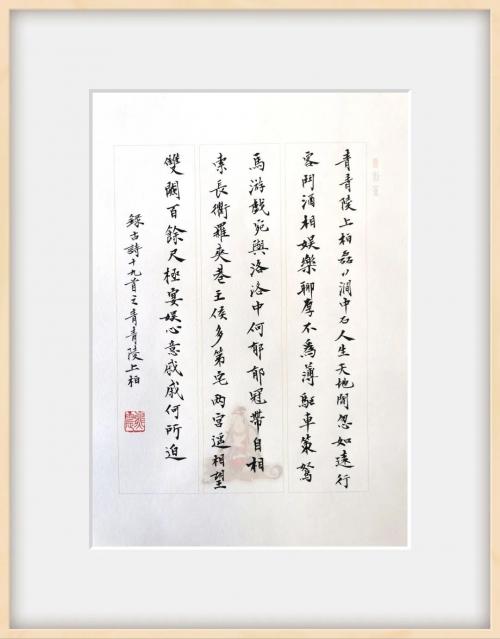 青青陵上柏磊々澗中石人生天地間忽如遠行
客鬥酒相娱樂聊厚不為薄駈車策駑
馬游戲宛與洛洛中何郁郁冠帶自相
索長衢羅夾巷王侯多第宅兩宮遥相望
雙闕百餘尺極宴娱心意戚戚何所迫
録古詩十九首之青青陵上柏